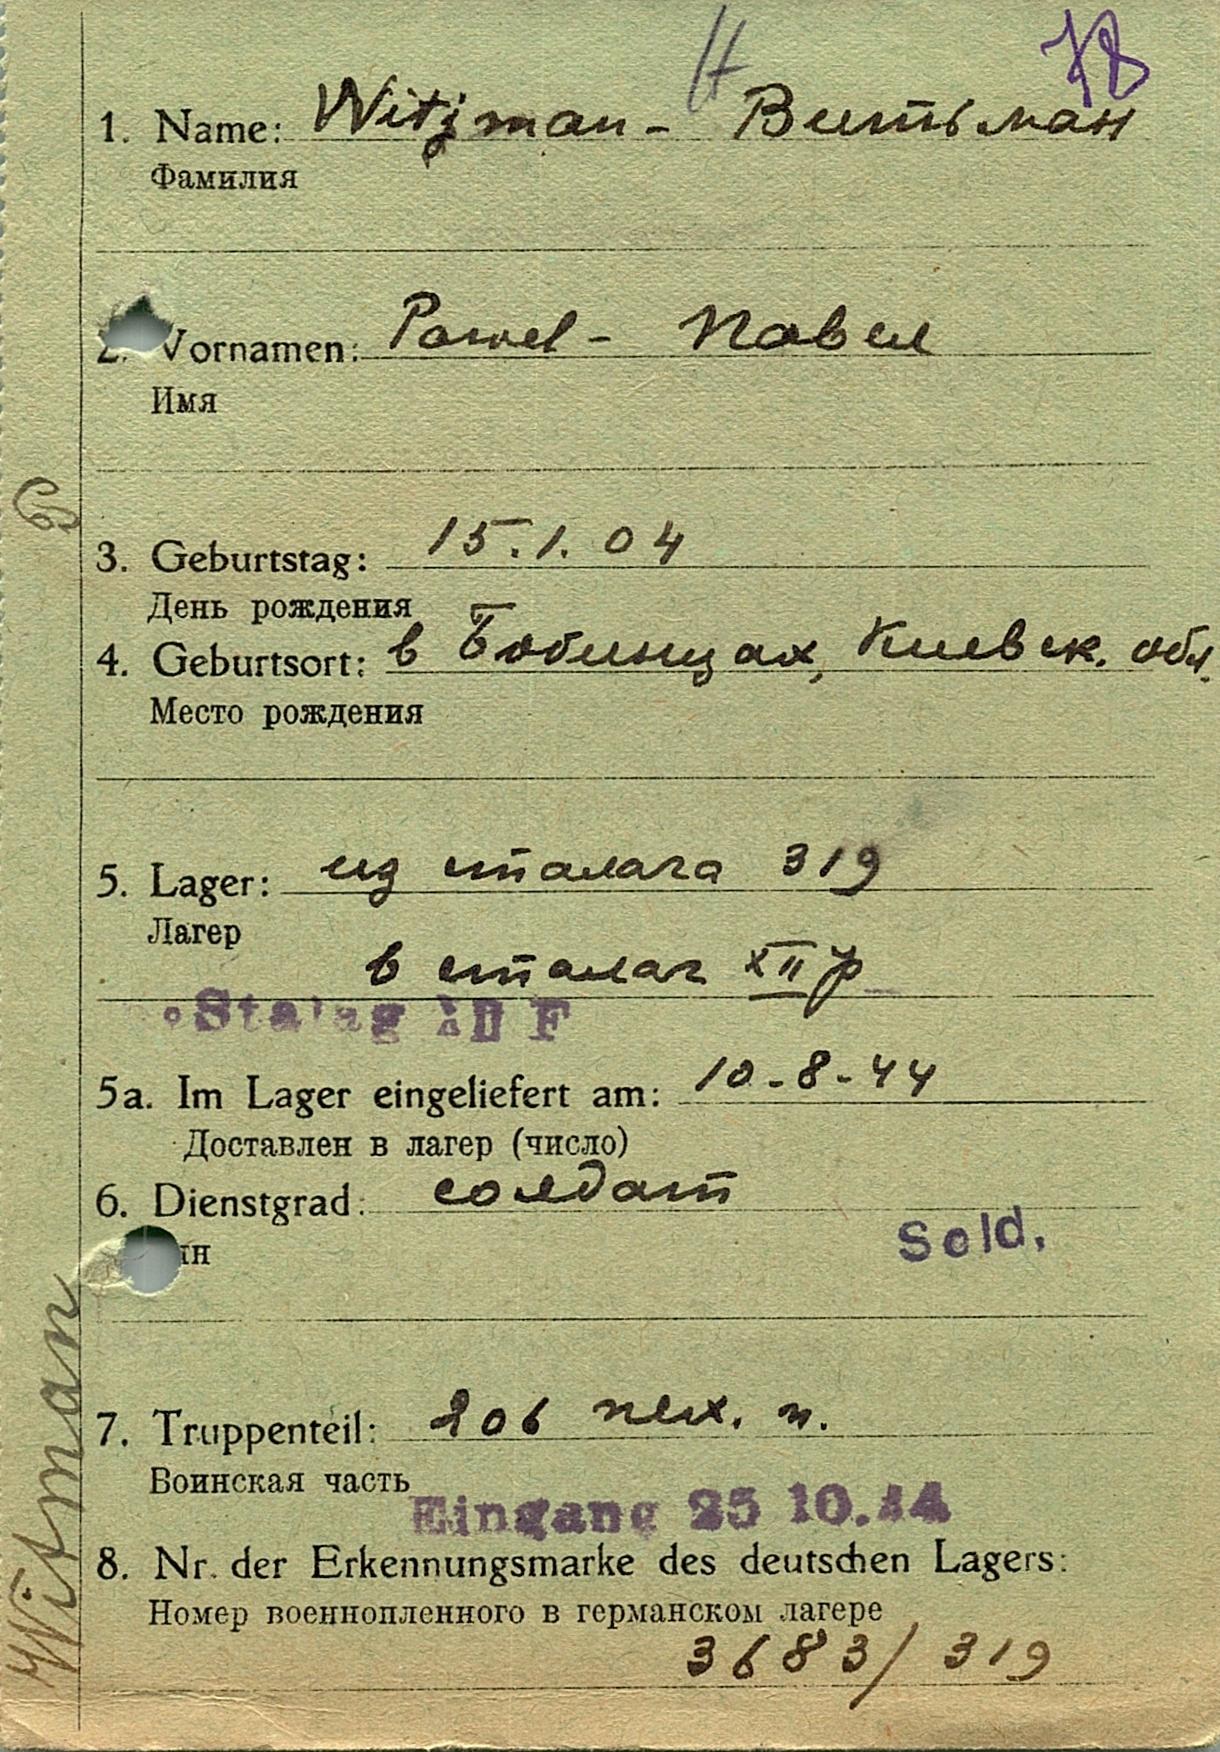 78
1. Name: Witzman - Витьман
Фамилия
2. Vornamen: Pawel - Павел
Имя
3. Geburtstag: 15.1.04
День рождения
4. Geburtsort: в Бобинцах, Киевск. обл.
Место рождения
5. Lager: из сталага 319
Лагер
в сталаг XII F
Stalag XII F
5a. Im Lager eingeliefert am: 10-8-44
Доставлен в лагер (число)
6. Dienstgrad: солдат
ин
Sold.
7. Truppenteil: 206 пех. п.
Воинская часть
Eingang 25 10.44
8. Nr. der Erkennungsmarke des deutschen Lagers:
Номер военнопленного в германском лагере
3683/319
Witman